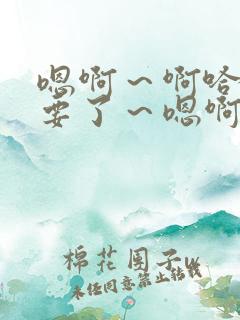 嗯啊～啊哈
要了～嗯啊
棉花团子w
未经同意禁止转载